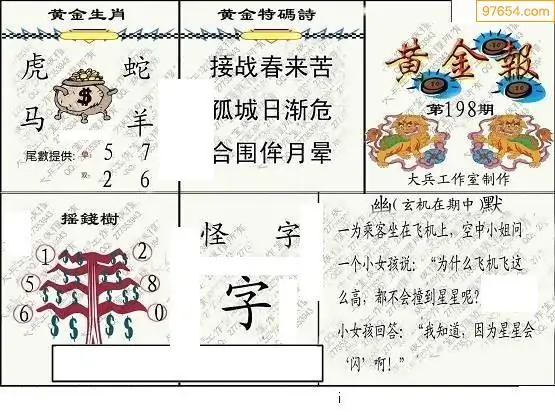 97654.com
黄金生肖
虎
蛇
马
羊
尾數提供:
单:
5 7
双:
2 6
黄金特碼詩
接战春来苦
孤城日渐危
合围侔月晕
黄金報
第198期
大兵工作室制作
摇錢樹
1
2
5
8
6
0
怪 字
字
幽(玄机在期中)默
一为乘客坐在飞机上，空中小姐问
一个小女孩说：“为什么飞机飞这
么高，都不会撞到星星呢？
小女孩回答：“我知道，因为星星会
‘闪’啊！”
i